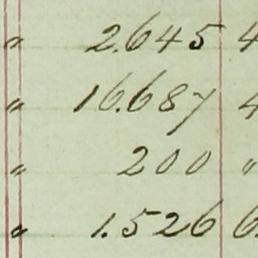 " 2.645 4
" 16.687 4
" 200 "
" 1.526 6